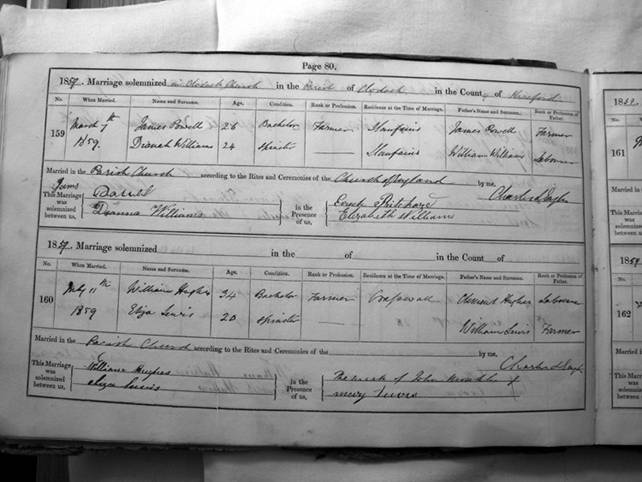 Page 80.
1859. Marriage solemnized in Clodock Church in the Parish of Clodock in the County of Hereford
No. When Married. Name and Surname. Age. Condition. Rank or Profession. Residence at the Time of Marriage. Father's Name and Surname. Rank or Profession of Father.
159 March 7th James Powell 26 Bachelor Farmer James Powell Farmer
1859. Williams 24 Spinster William Williams Laborer
Married in the Parish Church according to the Rites and Ceremonies of the Church of England by me,
This Marriage was solemnized between us, James Powell In the Presence of us,
Williams Elizabeth Williams
1859. Marriage solemnized in the of in the Count of
No. When Married. Name and Surname. Age. Condition. Rank or Profession. Residence at the Time of Marriage. Father's Name and Surname. Rank or Profession of Father.
160 11th William Hughes 34 Bachelor Farmer Hughes Laborer
1859 Eliza Lewis 20 Spinster William Lewis Farmer
Married in the Parish Church according to the Rites and Ceremonies of the by me,
This Marriage was solemnized between us, William Hughes In the Presence of us, The mark of John
Eliza Lewis Mary Lewis
185
No.
161
185
No.
162